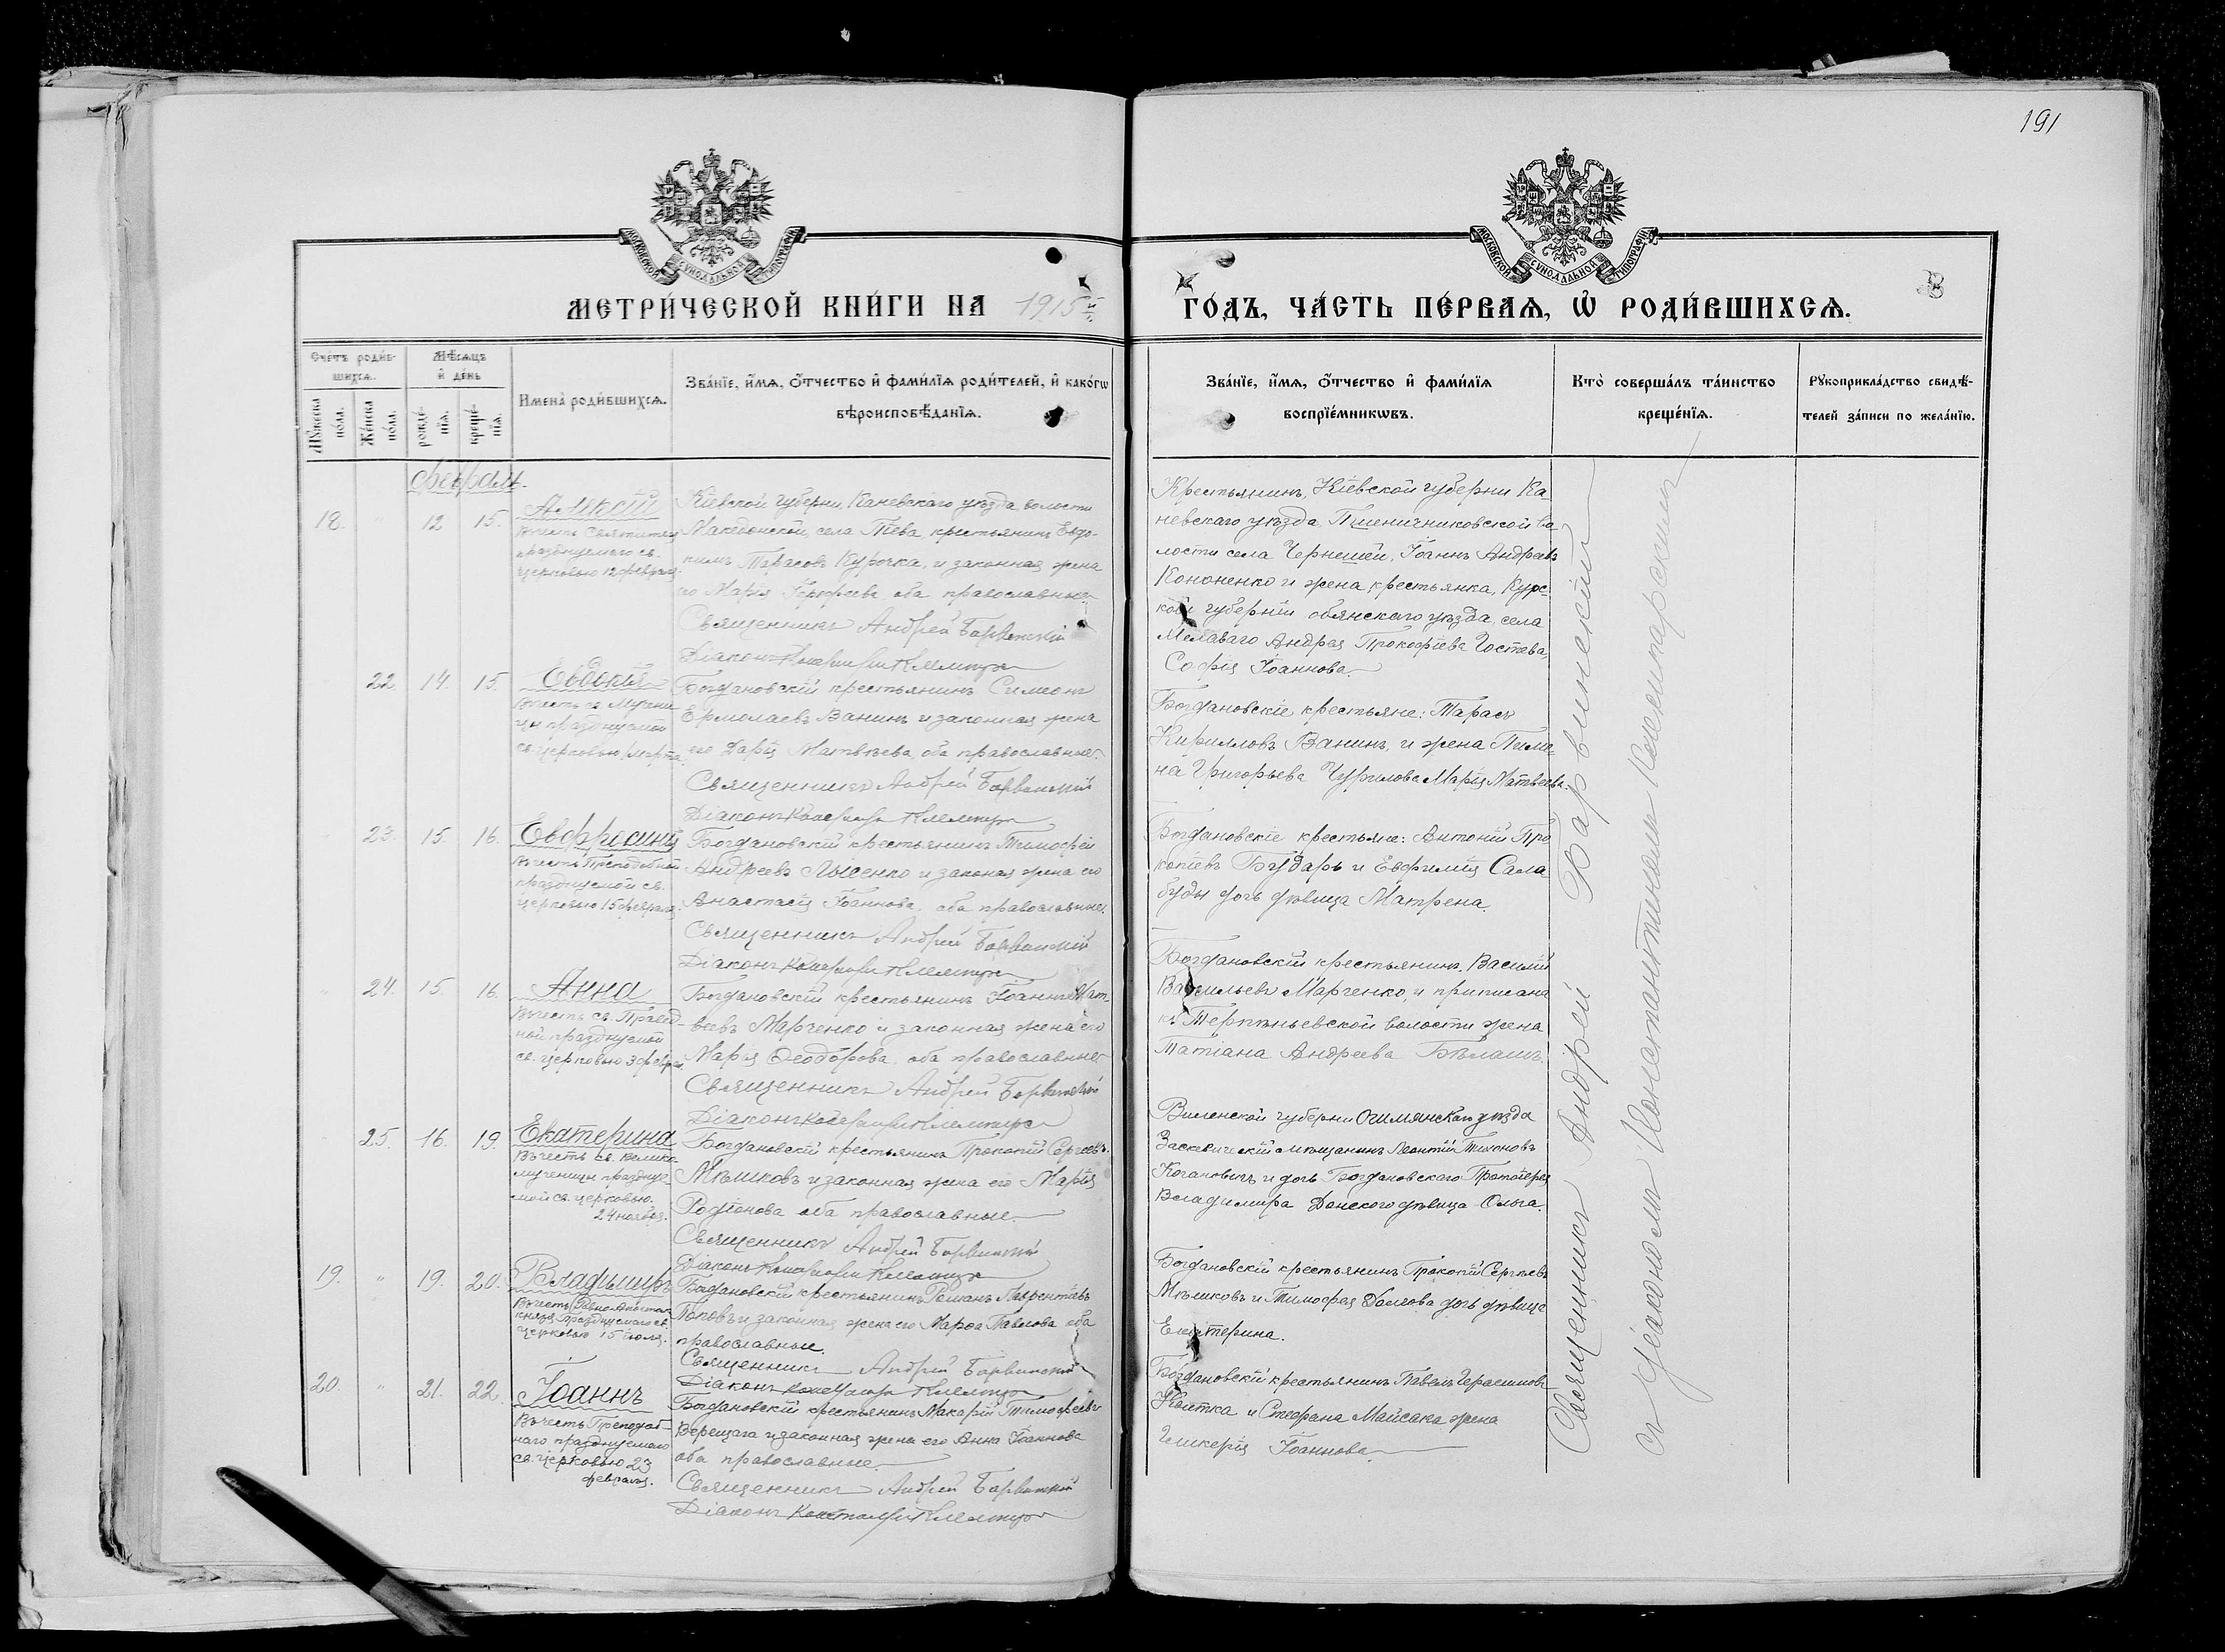 191
МОСКОВСКОЙ СѴНОДАЛЬНОЙ ТИПОГРАФІИ
МОСКОВСКОЙ СѴНОДАЛЬНОЙ ТИПОГРАФІИ
МЕТРИ́ЧЕСКОЙ КНИ́ГИ НА 1915 й
ГО́ДЪ, ЧА́СТЬ ПЕ́РВАѦ, Ѡ҆ РОДИ́ВШИХСѦ.
Сче́тъ роди́в-
шихсѧ.
Мѣ́сѧцъ
и҆ де́нь
Мꙋ́жеска по́ла.
Же́нска по́ла.
рожде́-нїѧ.
креще́-нїѧ.
Имена̀ роди́вшихсѧ.
Зва́нїе, и҆́мѧ, ѻ҆́тчество и҆ фами́лїѧ роди́телей, и҆ како́гѡ
вѣроисповѣ́данїѧ.
Зва́нїе, и҆́мѧ, ѻ҆́тчество и҆ фами́лїѧ
воспрїе́мникѡвъ.
Кто̀ соверша́лъ та́инство
креще́нїѧ.
Рꙋкоприкла́дство свидѣ́-
телей за́писи по жела́нїю.
Февраль.
18. " 12 15.
Алексій
Въ честь Святителя
празднуемаго св.
церковью 12 февраля.
Кіевской губерніи, Каневскаго уѣзда, волости
Македонской, села крестьянинъ Евдо-
кимъ Тарасовъ Курочка, и законная жена
его Марія оба православные
Священникъ Андрей Барвинскій
Діаконъ
Крестьянинъ, Кіевской губерніи Ка-
невскаго уѣзда, Пшеничниковской во-
лости села Чернешей, Іоаннъ Андреевъ
Кононенко и жена крестьянка, Курс-
кой губерніи обянскаго уѣзда, села
Андрея Прокофіева
Софія Іоаннова.
22. 14. 15.
Евдокія
Въ честь св. Мучени-
цы празднуемой
св. церковью, марта.
Богдановскій крестьянинъ Симеонъ
Ермолаевъ Ванинъ и законная жена
его Дарія Матвѣева, оба православные.
Священникъ Андрей Барвинскій
Діаконъ
Богдановскіе крестьяне: Тарасъ
Кирилловъ Ванинъ, и жена Пиме-
на Григорьева Чурилова Марія Матвѣева.
23. 15. 16.
Евфросинія
Въ честь Преподобной
празднуемой св.
церковью 15 февраля.
Богдановскій крестьянинъ Тимофей
Андреевъ Лысенко и законая жена его
Анастасія Іоаннова, оба православные.
Священникъ Андрей Барвинскій
Діаконъ
Богдановскіе крестьяне: Антоній Про-
копіевъ Бударь и Евфимія Сала-
буды дочь дѣвица Матрена.
" 24. 15. 16.
Анна
Въ честь св. Правед-
ной празднуемой
св. церковью 3 февра.
Богдановскій крестьянинъ Іоаннъ Мат-
вѣевъ Марченко и законная жена его
Марія Ѳеодорова, оба православные
Священникъ Андрей Барвинскій
Діаконъ
Богдановскій крестьянинъ, Василій
Васильевъ Марченко, и приписана
къ Терпѣньевской волости жена
Татіана Андреева Бѣлашъ.
25. 16. 19.
Екатерина
Въ честь св. Велико-
мученицы праздну-
мой св. церковью.
24 ноября.
Богдановскій крестьянинъ Прокопій Сергѣевъ
Мѣшковъ и законная жена его Марія
Родіонова оба православные.
Священникъ Андрей Барвинскій
Діаконъ
Виленской губерніи уѣзда
мѣщанинъ Леонтій Тихоновъ
и дочь Богдановскаго Протоіерея
Владимира Донскаго дѣвица Ольга.
19. " 19. 20.
Владиміръ
Въ честь Равно-Апостол
князя празднуемаго св.
церковью 15 іюля.
Богдановскій крестьянинъ Романъ Лаврентіевъ
Поповъ и законная жена его Марѳа Павлова оба
православные.
Священникъ Андрей Барвинскій
Діаконъ
Богдановскій крестьянинъ Прокопій Сергѣевъ
Мѣшковъ и Тимофея дочь дѣвица
Екатерина.
20. " 21. 22.
Іоаннъ
Въ честь Преподоб-
наго празднуемаго
св. церковью 23
февраля.
Богдановскій крестьянинъ Макарій Тимофеевъ
Верещага и законная жена его Анна Іоаннова
оба православные.
Священникъ Андрей Барвинскій
Діаконъ
Богдановскій крестьянинъ Павелъ Герасимовъ
Квитка и Стефана Майсака жена
Гликерія Іоаннова.
Священникъ Андрей Барвинскій
съ діакономъ Константиномъ